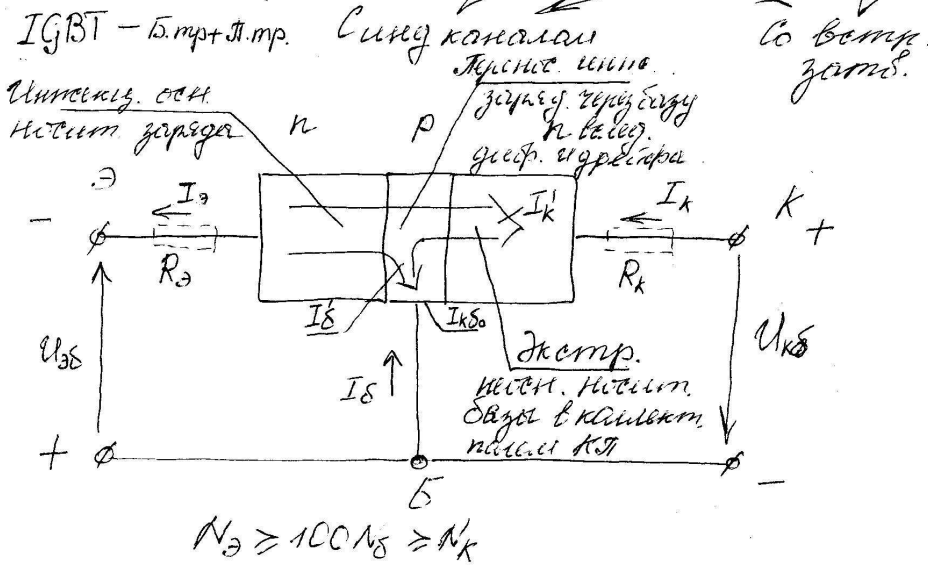 IGBT – Б.тр+П.тр. С инд каналом
Со встр.
затв.
Инжекц. осн.
носит. заряда
n
p
Перенос. инж.
заряд. через базу
вслед.
диф. и дрейфа
Э
К
- Iэ Iк' Iк +
Rэ Rк
Iб' Iкбо
Uэб Iб Uкб
Экстр.
неосн. носит.
базы в коллект.
полем КП
+ -
Б
Nэ ≥ 100Nб ≥ Nк